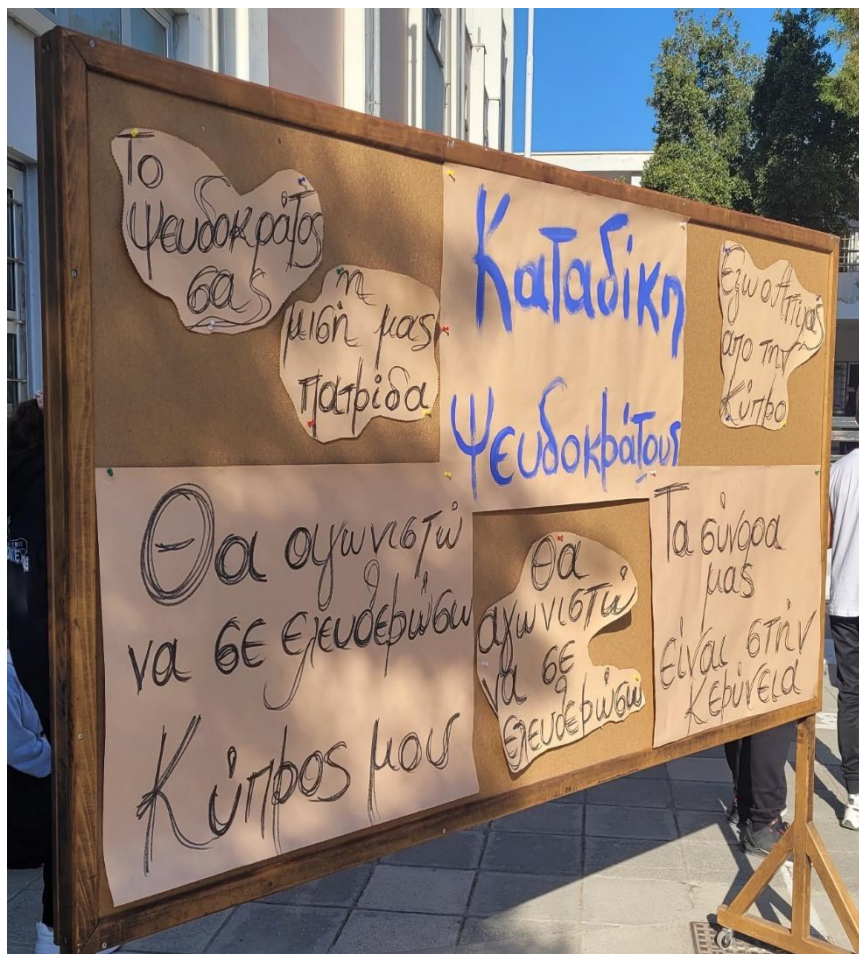 Το
ψευδοκράτος
σας
η
μισή μας
πατρίδα
Καταδίκη
Ψευδοκράτους
Έξω ο Αττίλας
απο την
Κύπρο
Θα αγωνιστώ
να σε ελευθερώσω
Κύπρος μου
Θα
αγωνιστώ
να σε
ελευθερώσω
Τα σύνορα
μας
είναι στην
Κερύνεια